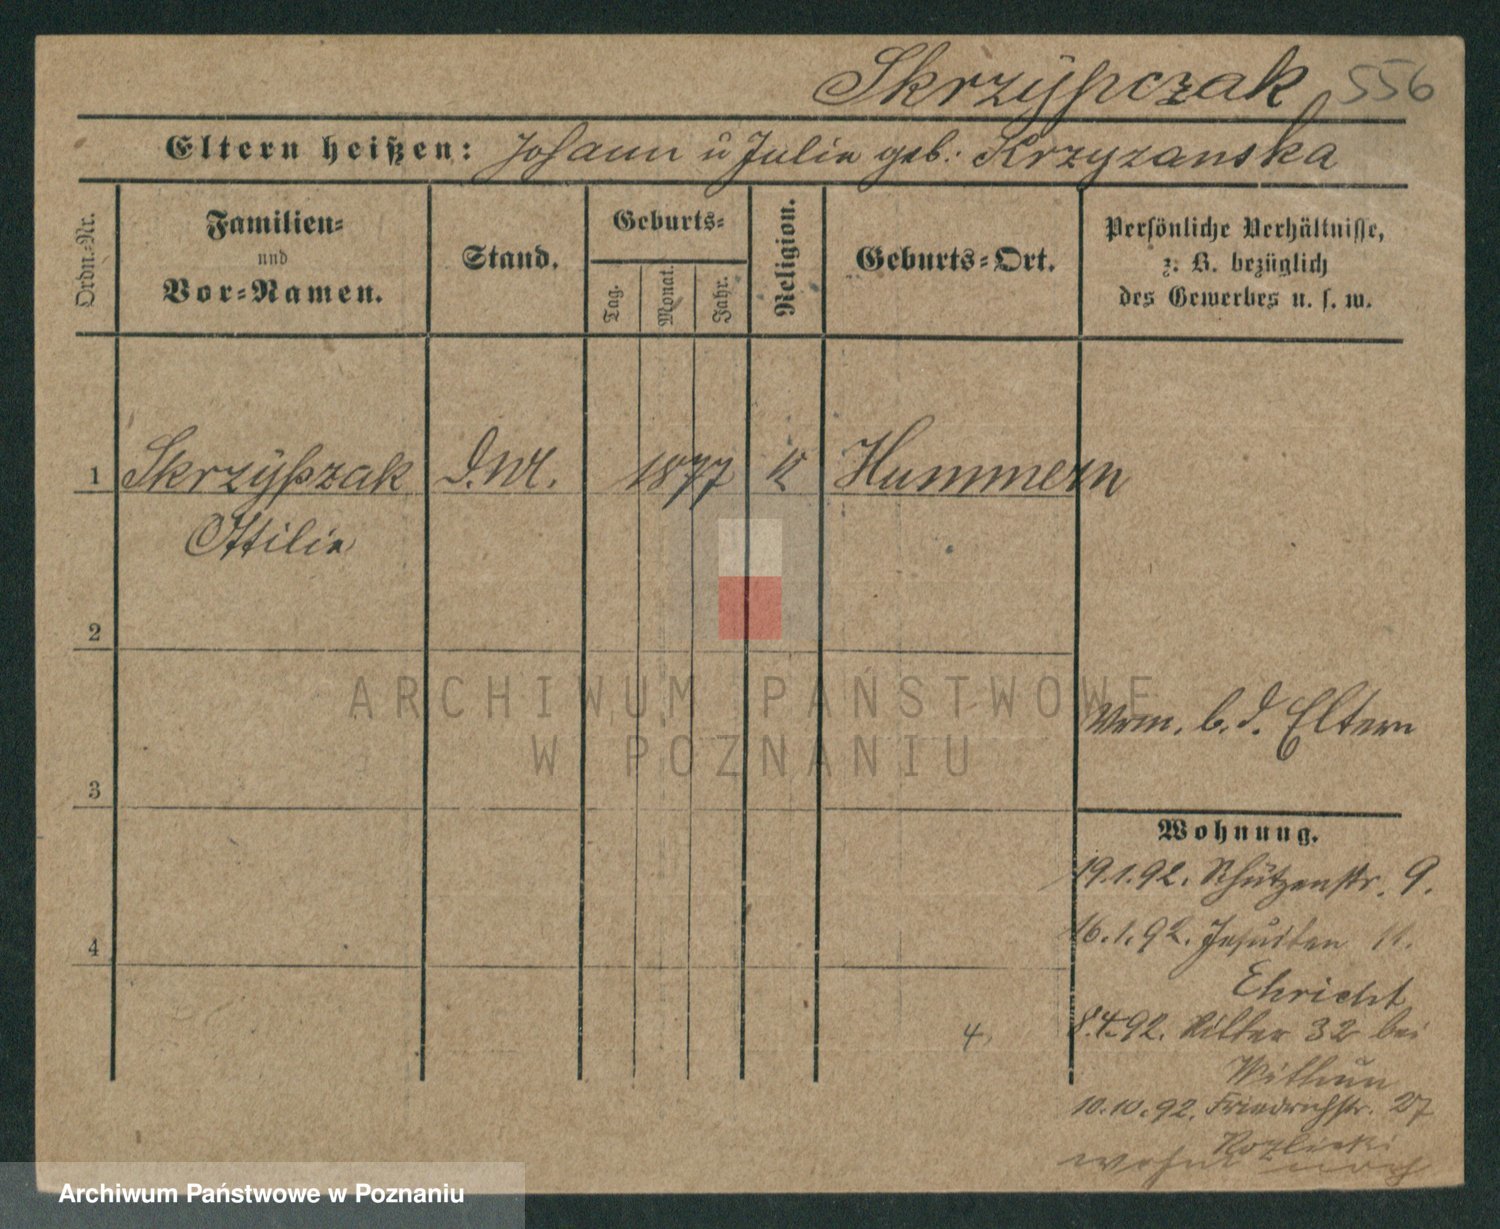 Skrzÿpczak 556
Eltern heißen: Johann u Julie geb. Krzyzanska
Ordn.-Nr.
Familien-
und
Vor-Namen.
Stand.
Geburts-
Tag.
Monat.
Jahr.
Religion.
Geburts-Ort.
Persönliche Verhältnisse,
z. B. bezüglich
des Gewerbes u. s. w.
1 Skrzÿpzak 1877 K Hummern
Ottilie
2
ARCHIWUM PAŃSTWOWE
W POZNANIU
b. d. Eltern
3
Wohnung.
19.1.92. Schützenstr. 9.
16.1.92. Jesuiten 11.
4
Ehricht
4 8.4.92. Ritter 32 bei
10.10.92. Friedrichstr. 27
wohnt noch
Archiwum Państwowe w Poznaniu